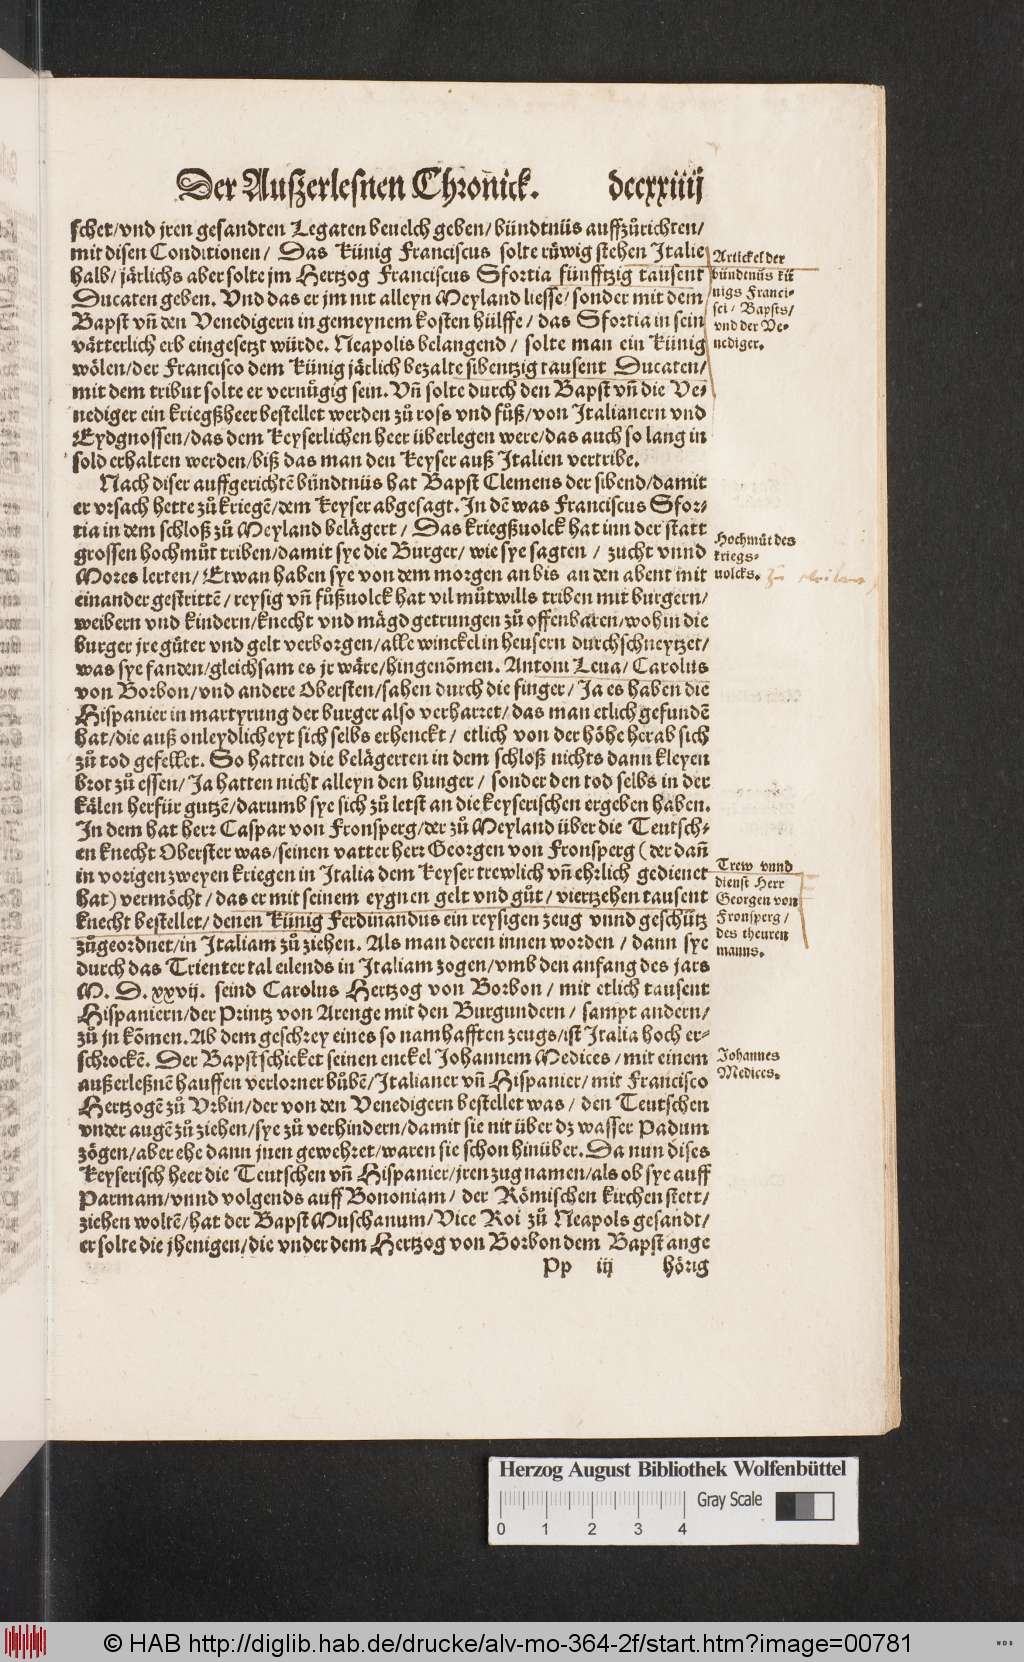 Der Außzerlesnen Chronick. dccxxiiij
schet/vnd jren gesandten Legaten beuelch geben/bündtnüs auffzůrichten/
mit disen Conditionen/ Das Künig Franciscus solte rüwig stehen Italie
halb/ järlichs aber solte jm Hertzog Franciscus Sfortia fünfftzig tausent
Ducaten geben. Vnd das er jm nit alleyn Meyland liesse/ sonder mit dem
Bapst vñ den Venedigern in gemeynem kosten hülffe/ das Sfortia in sein
vätterlich erb eingesetzt würde. Neapolis belangend/ solte man ein Künig
wölen/der Francisco dem Künig järlich bezalte sibentzig tausent Ducaten/
mit dem tribut solte er vernůgig sein. Vñ solte durch den Bapst vñ die Ve-
nediger ein kriegßheer bestellet werden zů ross vnd fůß/von Italianern vnd
Eydgnossen/das dem Keyserlichen heer überlegen were/das auch so lang in
sold erhalten werden/biß das man den Keyser auß Italien vertribe.
Nach diser auffgerichtē bündtnüs hat Bapst Clemens der sibend/damit
er vrsach hette zů kriegē/dem Keyser abgesagt. In dē was Franciscus Sfor-
tia in dem schloß zů Meyland belägert/ Das kriegßuolck hat inn der statt
grossen hochmůt triben/damit sye die Burger/ wie sye sagten/ zucht vnnd
Mores lerten/ Etwan haben sye von dem morgen an bis an den abent mit
einander gestrittē/ reysig vñ fůßuolck hat vil můtwills triben mit burgern/
weibern vnd kindern/knecht vnd mägd getrungen zů offenbaren/wohin die
burger jre gůter vnd gelt verborgen/alle winckel in heusern durchschneytzet/
was sye fanden/gleichsam es jr wäre/hingenōmen. Antoni Leua/ Carolus
von Borbon/vnd andere Obersten/sahen durch die finger/ Ja es haben die
Hispanier in martyrung der burger also verharret/das man etlich gefundē
hat/die auß onleydlicheyt sich selbs erhenckt/ etlich von der höhe herab sich
zů tod gefellet. So hatten die belägerten in dem schloß nichts dann kleyen
brot zů essen/ Ja hatten nicht alleyn den hunger/ sonder den tod selbs in der
kälen herfür gutzē/darumb sye sich zů letst an die keyserischen ergeben haben.
In dem hat herr Caspar von Fronsperg/der zů Meyland über die Teutsch-
en knecht Oberster was/seinen vatter herr Georgen von Fronsperg (der dañ
in vorigen zweyen kriegen in Italia dem Keyser trewlich vñ ehrlich gedienet
hat) vermöcht/ das er mit seinem eygnen gelt vnd gůt/ viertzehen tausent
knecht bestellet/ denen Künig Ferdinandus ein reysigen zeug vnnd geschütz
zůgeordnet/in Italiam zů ziehen. Als man deren innen worden/ dann sye
durch das Trienter tal eilends in Italiam zogen/vmb den anfang des jars
M. D. xxvij. seind Carolus Hertzog von Borbon/ mit etlich tausent
Hispaniern/der Printz von Arenge mit den Burgundern/ sampt andern/
zů jn kōmen. Ab dem geschrey eines so namhafften zeugs/ist Italia hoch er-
schrockē. Der Bapst schicket seinen enckel Johannem Medices/ mit einem
außerleßnē hauffen verlorner bůbē/Italianer vñ Hispanier/ mit Francisco
Hertzogē zů Vrbin/der von den Venedigern bestellet was/ den Teutschen
vnder augē zů ziehen/sye zů verhindern/damit sie nit über dz wasser Padum
zögen/aber ehe dann jnen gewehret/waren sie schon hinüber. Da nun dises
Keyserisch heer die Teutschen vñ Hispanier/jren zug namen/als ob sye auff
Parmam/vnnd volgends auff Bononiam/ der Römischen kirchen stett/
ziehen woltē/hat der Bapst Muschanum/Vice Roi zů Neapols gesandt/
er solte die jhenigen/die vnder dem Hertzog von Borbon dem Bapst ange
Pp iij hörig
Artickel der
bündtnüs kü
nigs Franci-
sci/ Bapsts/
vnd der Ve-
nediger.
Hochmůt des
kriegs-
uolcks.
Trew vnnd
dienst Herr
Georgen von
Fronsperg/
des theuren
manns.
Johannes
Medices.
Herzog August Bibliothek Wolfenbüttel
Gray Scale
0 1 2 3 4
© HAB http://diglib.hab.de/drucke/alv-mo-364-2f/start.htm?image=00781